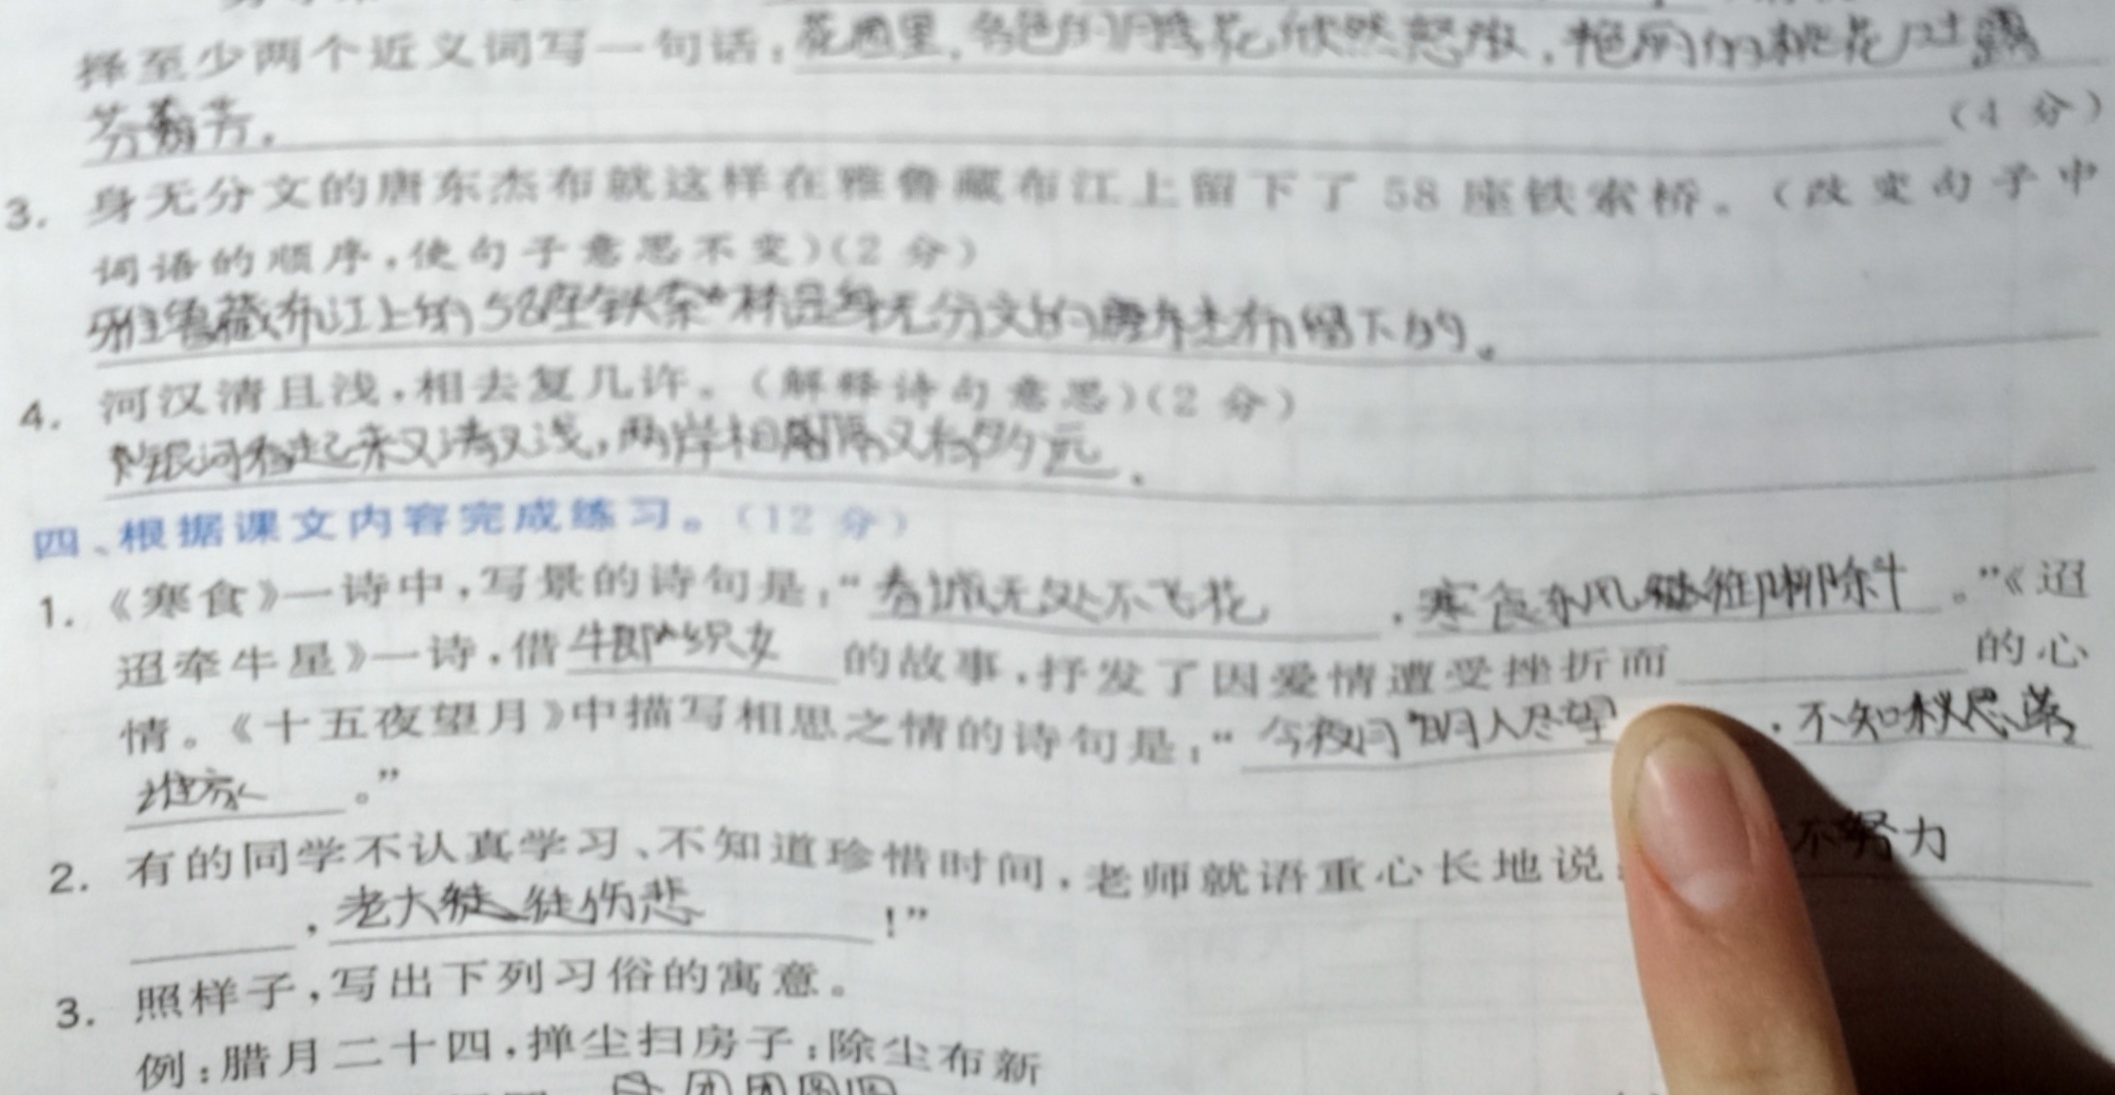 择至少两个近义词写一句话：花园里，各色的月季花欣然怒放，艳丽的桃花吐露
芬芳。（4 分）
3. 身无分文的唐东杰布就这样在雅鲁藏布江上留下了 58 座铁索桥。（改变句子中
词语的顺序，使句子意思不变）（2 分）
雅鲁藏布江上的58座铁索桥是身无分文的唐东杰布留下的。
4. 河汉清且浅，相去复几许。（解释诗句意思）（2 分）
银河看起来又清又浅，两岸相隔又有多远。
四、根据课文内容完成练习。（12 分）
1. 《寒食》一诗中，写景的诗句是：“春城无处不飞花，寒食东风御柳斜。”《迢
迢牵牛星》一诗，借牛郎织女的故事，抒发了因爱情遭受挫折而的心
情。《十五夜望月》中描写相思之情的诗句是：“今夜月明人尽望，不知秋思落
谁家。”
2. 有的同学不认真学习、不知道珍惜时间，老师就语重心长地说：不努力
，老大徒伤悲！”
3. 照样子，写出下列习俗的寓意。
例：腊月二十四，掸尘扫房子：除尘布新